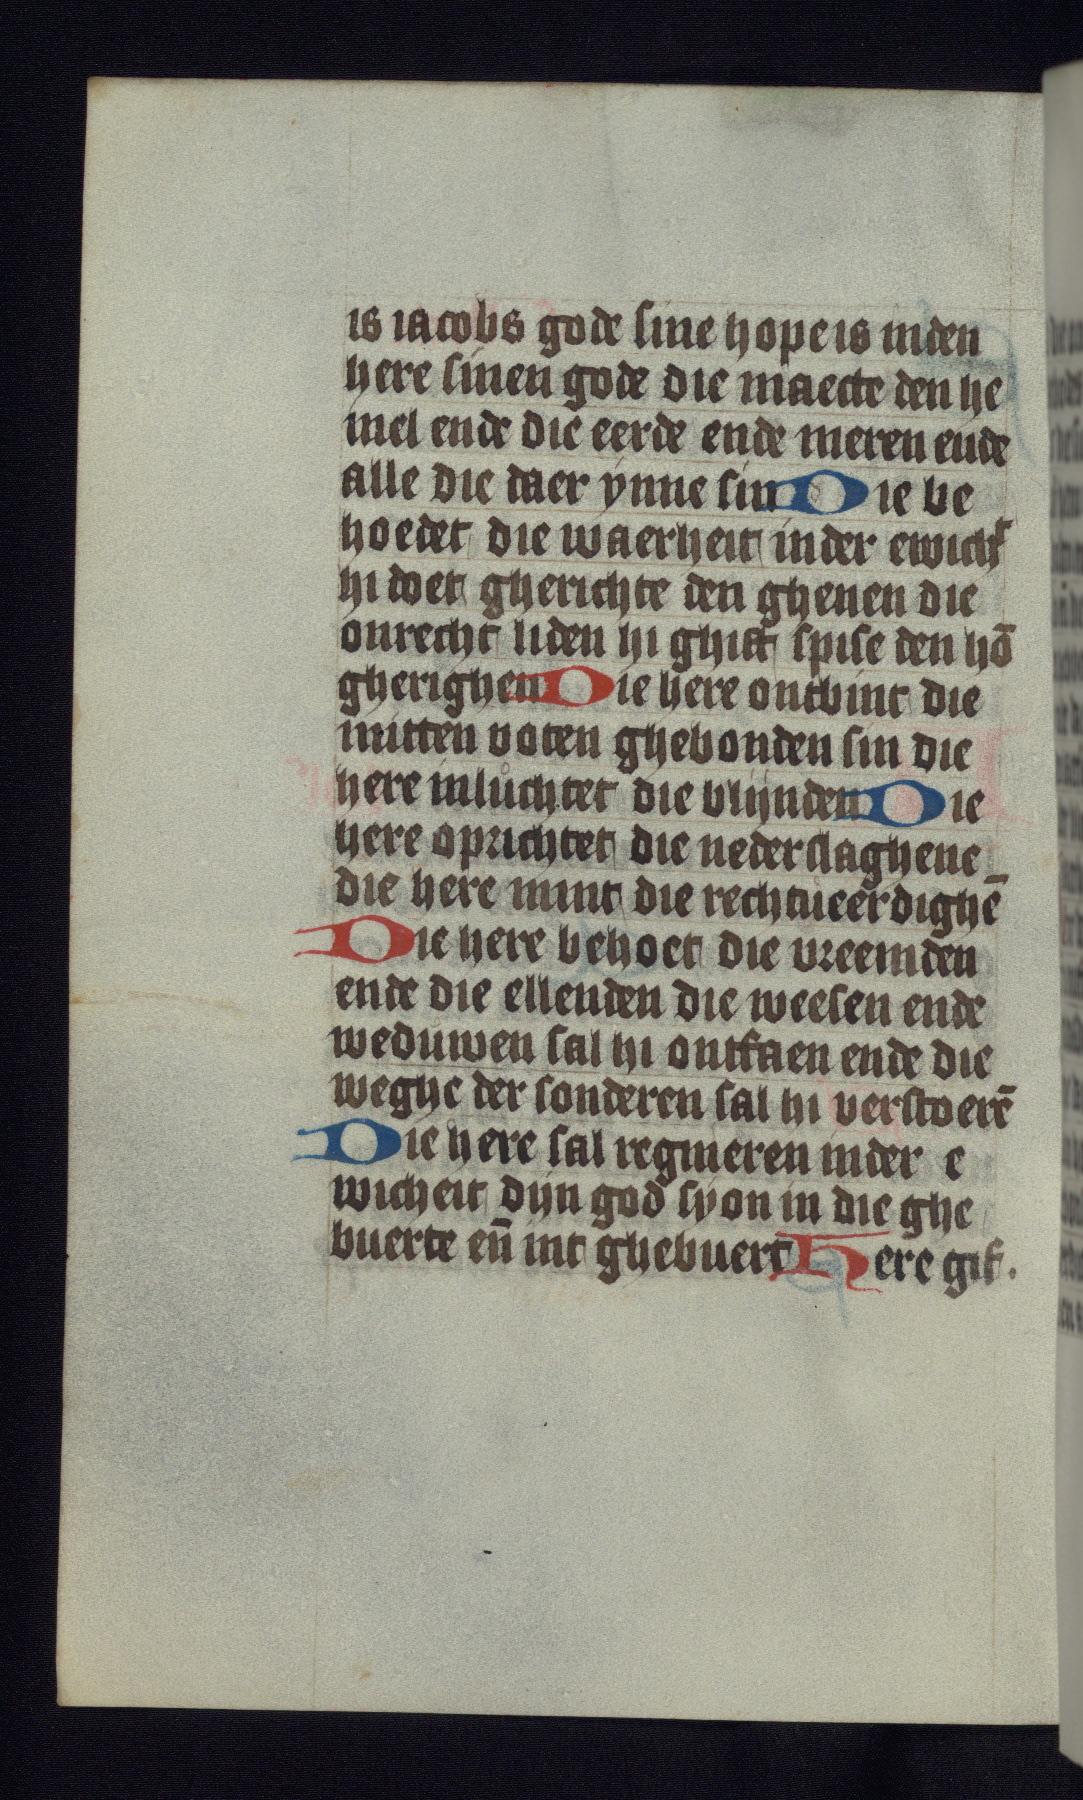 is iacobs gode sine hope is inden
here sinen gode die maecte den he
mel ende die eerde ende meren ende
alle die daer ynne sin Die be
hoedet die waerheit inder ewich^t
hi doet gherichte den ghenen die
onrecht liden hi ghift spise den hō
gherighen Die here ontbint die
mitten voten ghebonden sin die
here inluchtet die blijnden Die
here oprichtet die nederslaghene
die here mint die rechtueerdighē
Die here behoet die vreemden
ende die ellenden die weesen ende
weduwen sal hi ontfaen ende die
weghe der sonderen sal hi verstoerē
Die here sal regnieren inder e
wicheit dijn god syon in die ghe
buerte en̄ int ghebuert Here gif.